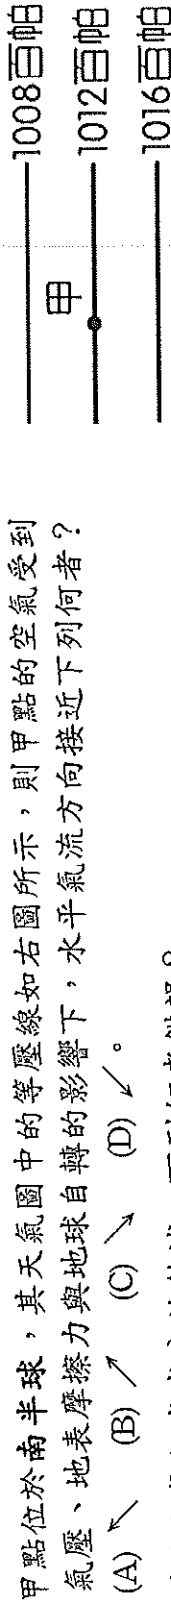 甲點位於南半球，其天氣圖中的等壓線如右圖所示，則甲點的空氣受到
氣壓、地表摩擦力與地球自轉的影響下，水平氣流方向接近下列何者？
(A) ↖ (B) ↗ (C) ↘ (D) ↙。
1008百帕
甲
1012百帕
1016百帕